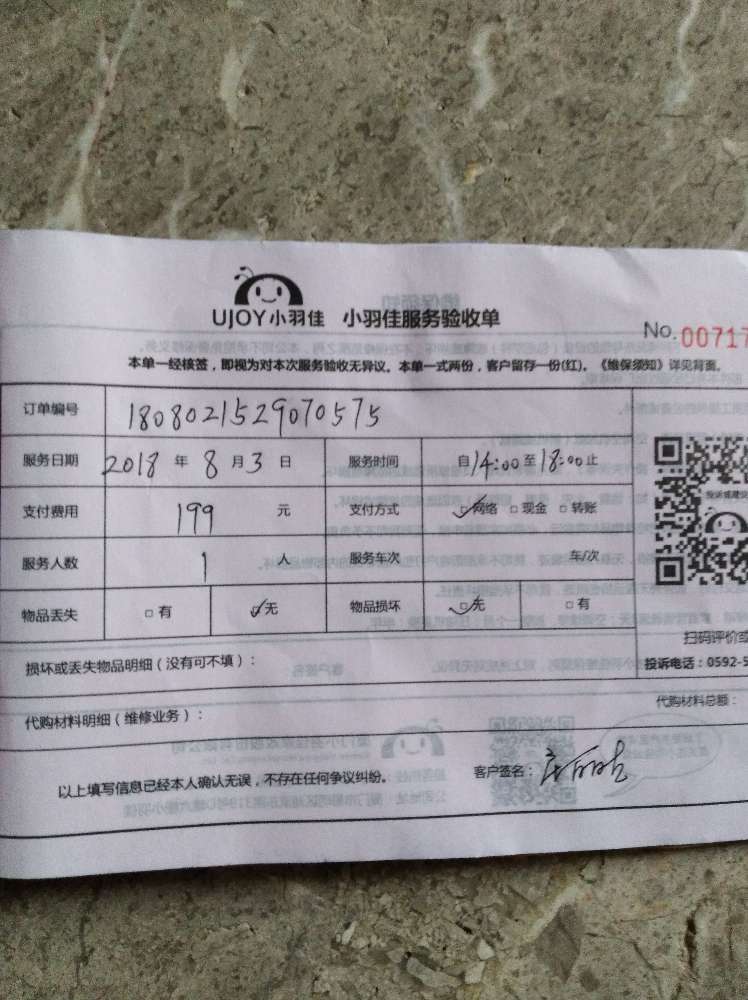 UJOY小羽佳 小羽佳服务验收单
No.00717
本单一经核签，即视为对本次服务验收无异议。本单一式两份，客户留存一份(红)。《维保须知》详见背面。
订单编号 1808021529070575
服务日期 2018 年 8 月 3 日 服务时间 自14:00至18:00止
支付费用 199 元 支付方式 网络 现金 转账
服务人数 1 人 服务车次 车/次
物品丢失 有 无 物品损坏 无 有
扫码评价或
损坏或丢失物品明细（没有可不填）：
投诉电话：0592-5
代购材料明细（维修业务）：
代购材料总额：
以上填写信息已经本人确认无误，不存在任何争议纠纷。 客户签名：